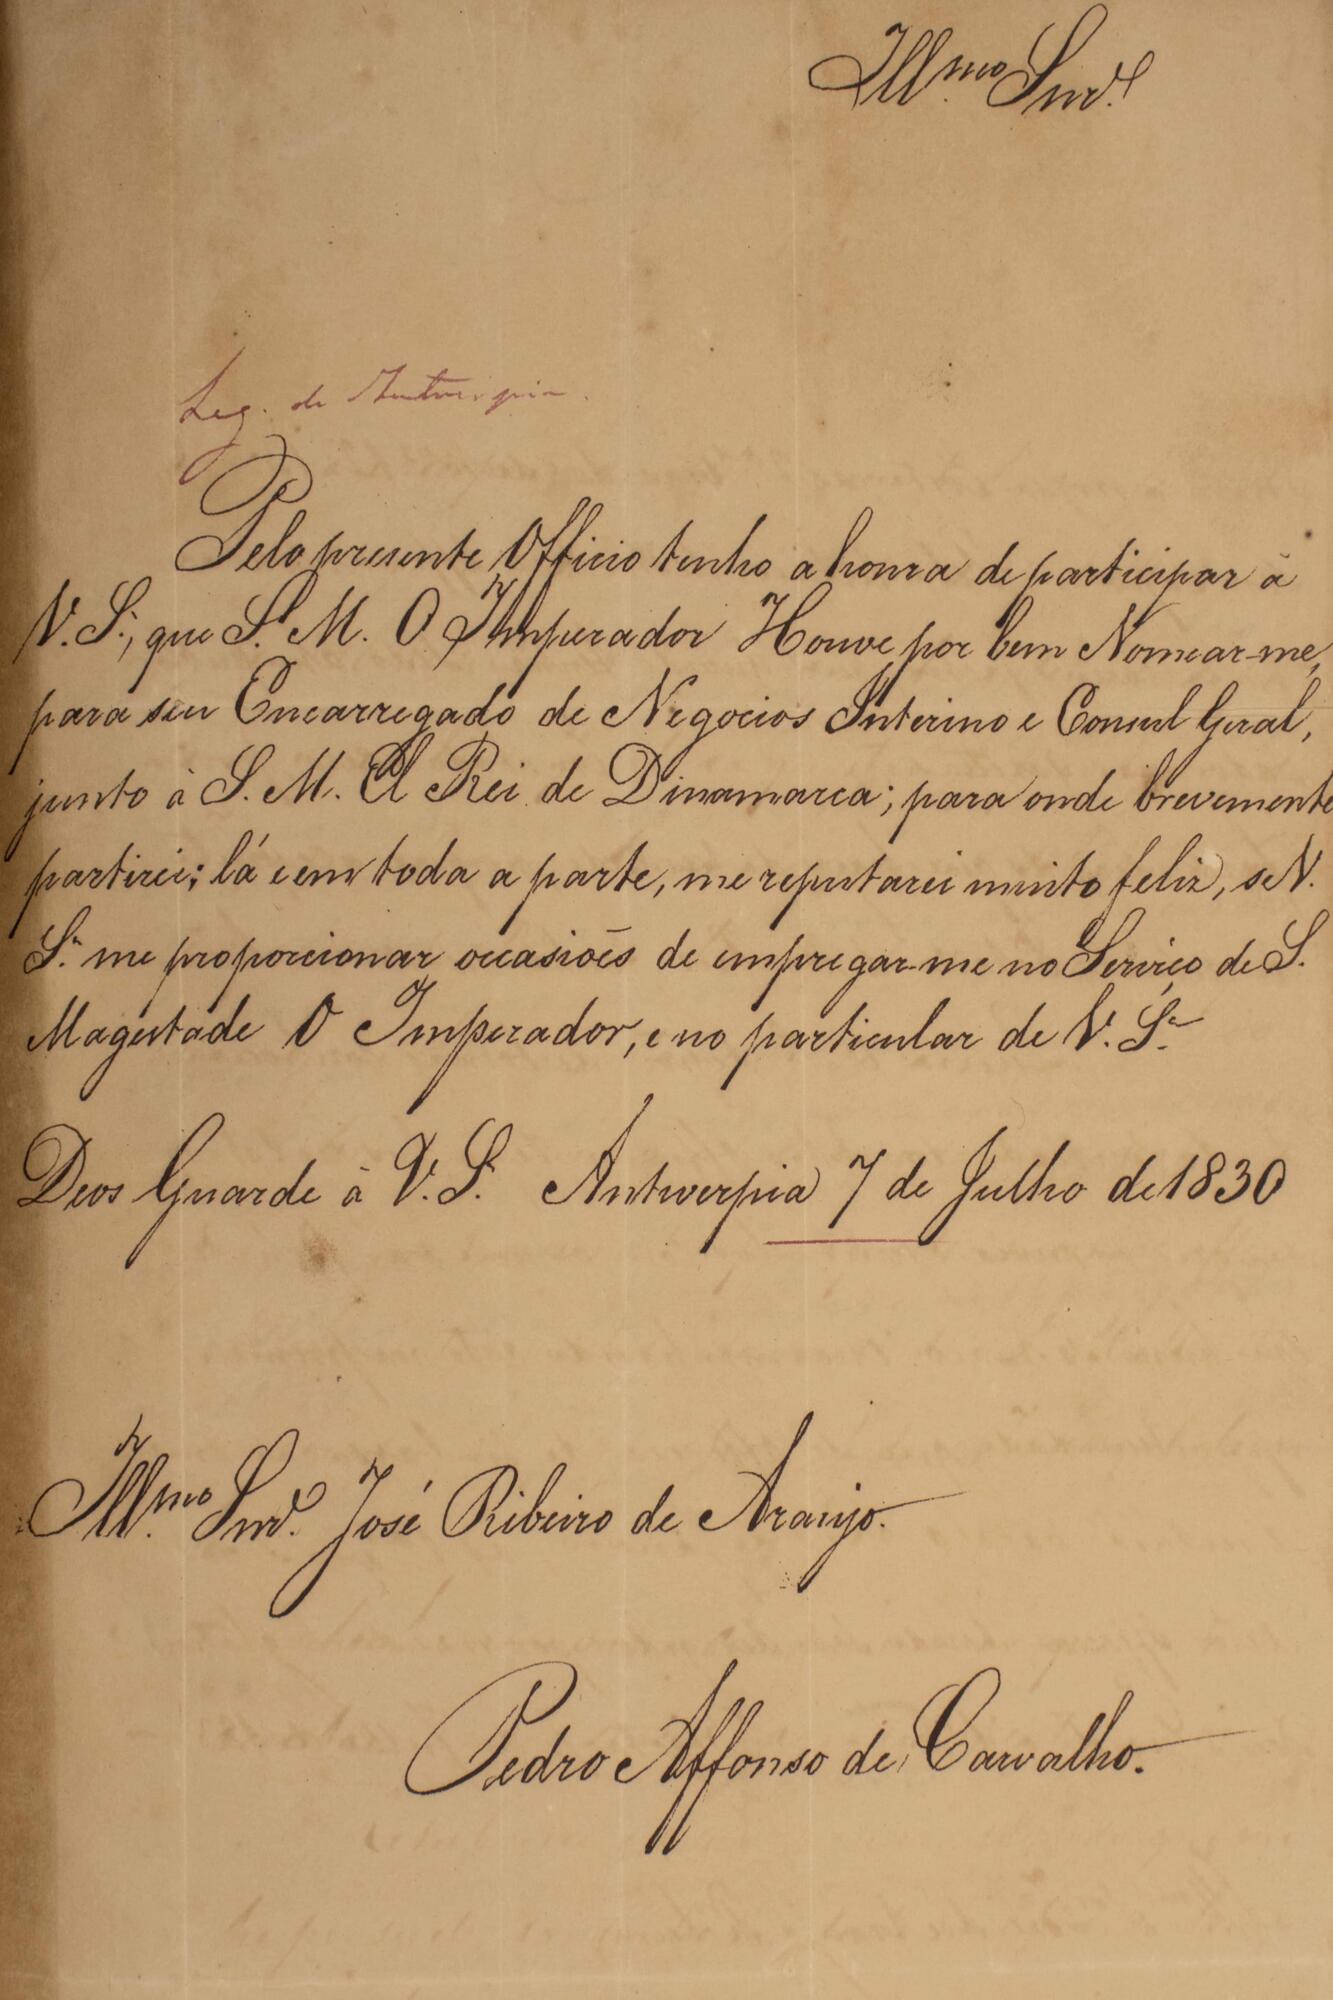 Ill.mo Snr.
Leg. de Antuerpia.
Pelo presente Officio tenho a honra de participar à
V. S.ª, que S. M. O Imperador Houve por bem Nomear-me,
para seu Encarregado de Negocios Interino e Consul Geral,
junto à S. M. El Rei de Dinamarca; para onde brevemente
partirei; lá e em toda a parte, me reputarei muito feliz, se V.
S.ª me proporcionar occasiões de empregar-me no Serviço de S.
Magestade O Imperador, e no particular de V. S.ª
Deos Guarde à V. S.ª Antwerpia 7 de Julho de 1830
Ill.mo Snr. José Ribeiro de Araujo.
Pedro Affonso de Carvalho.